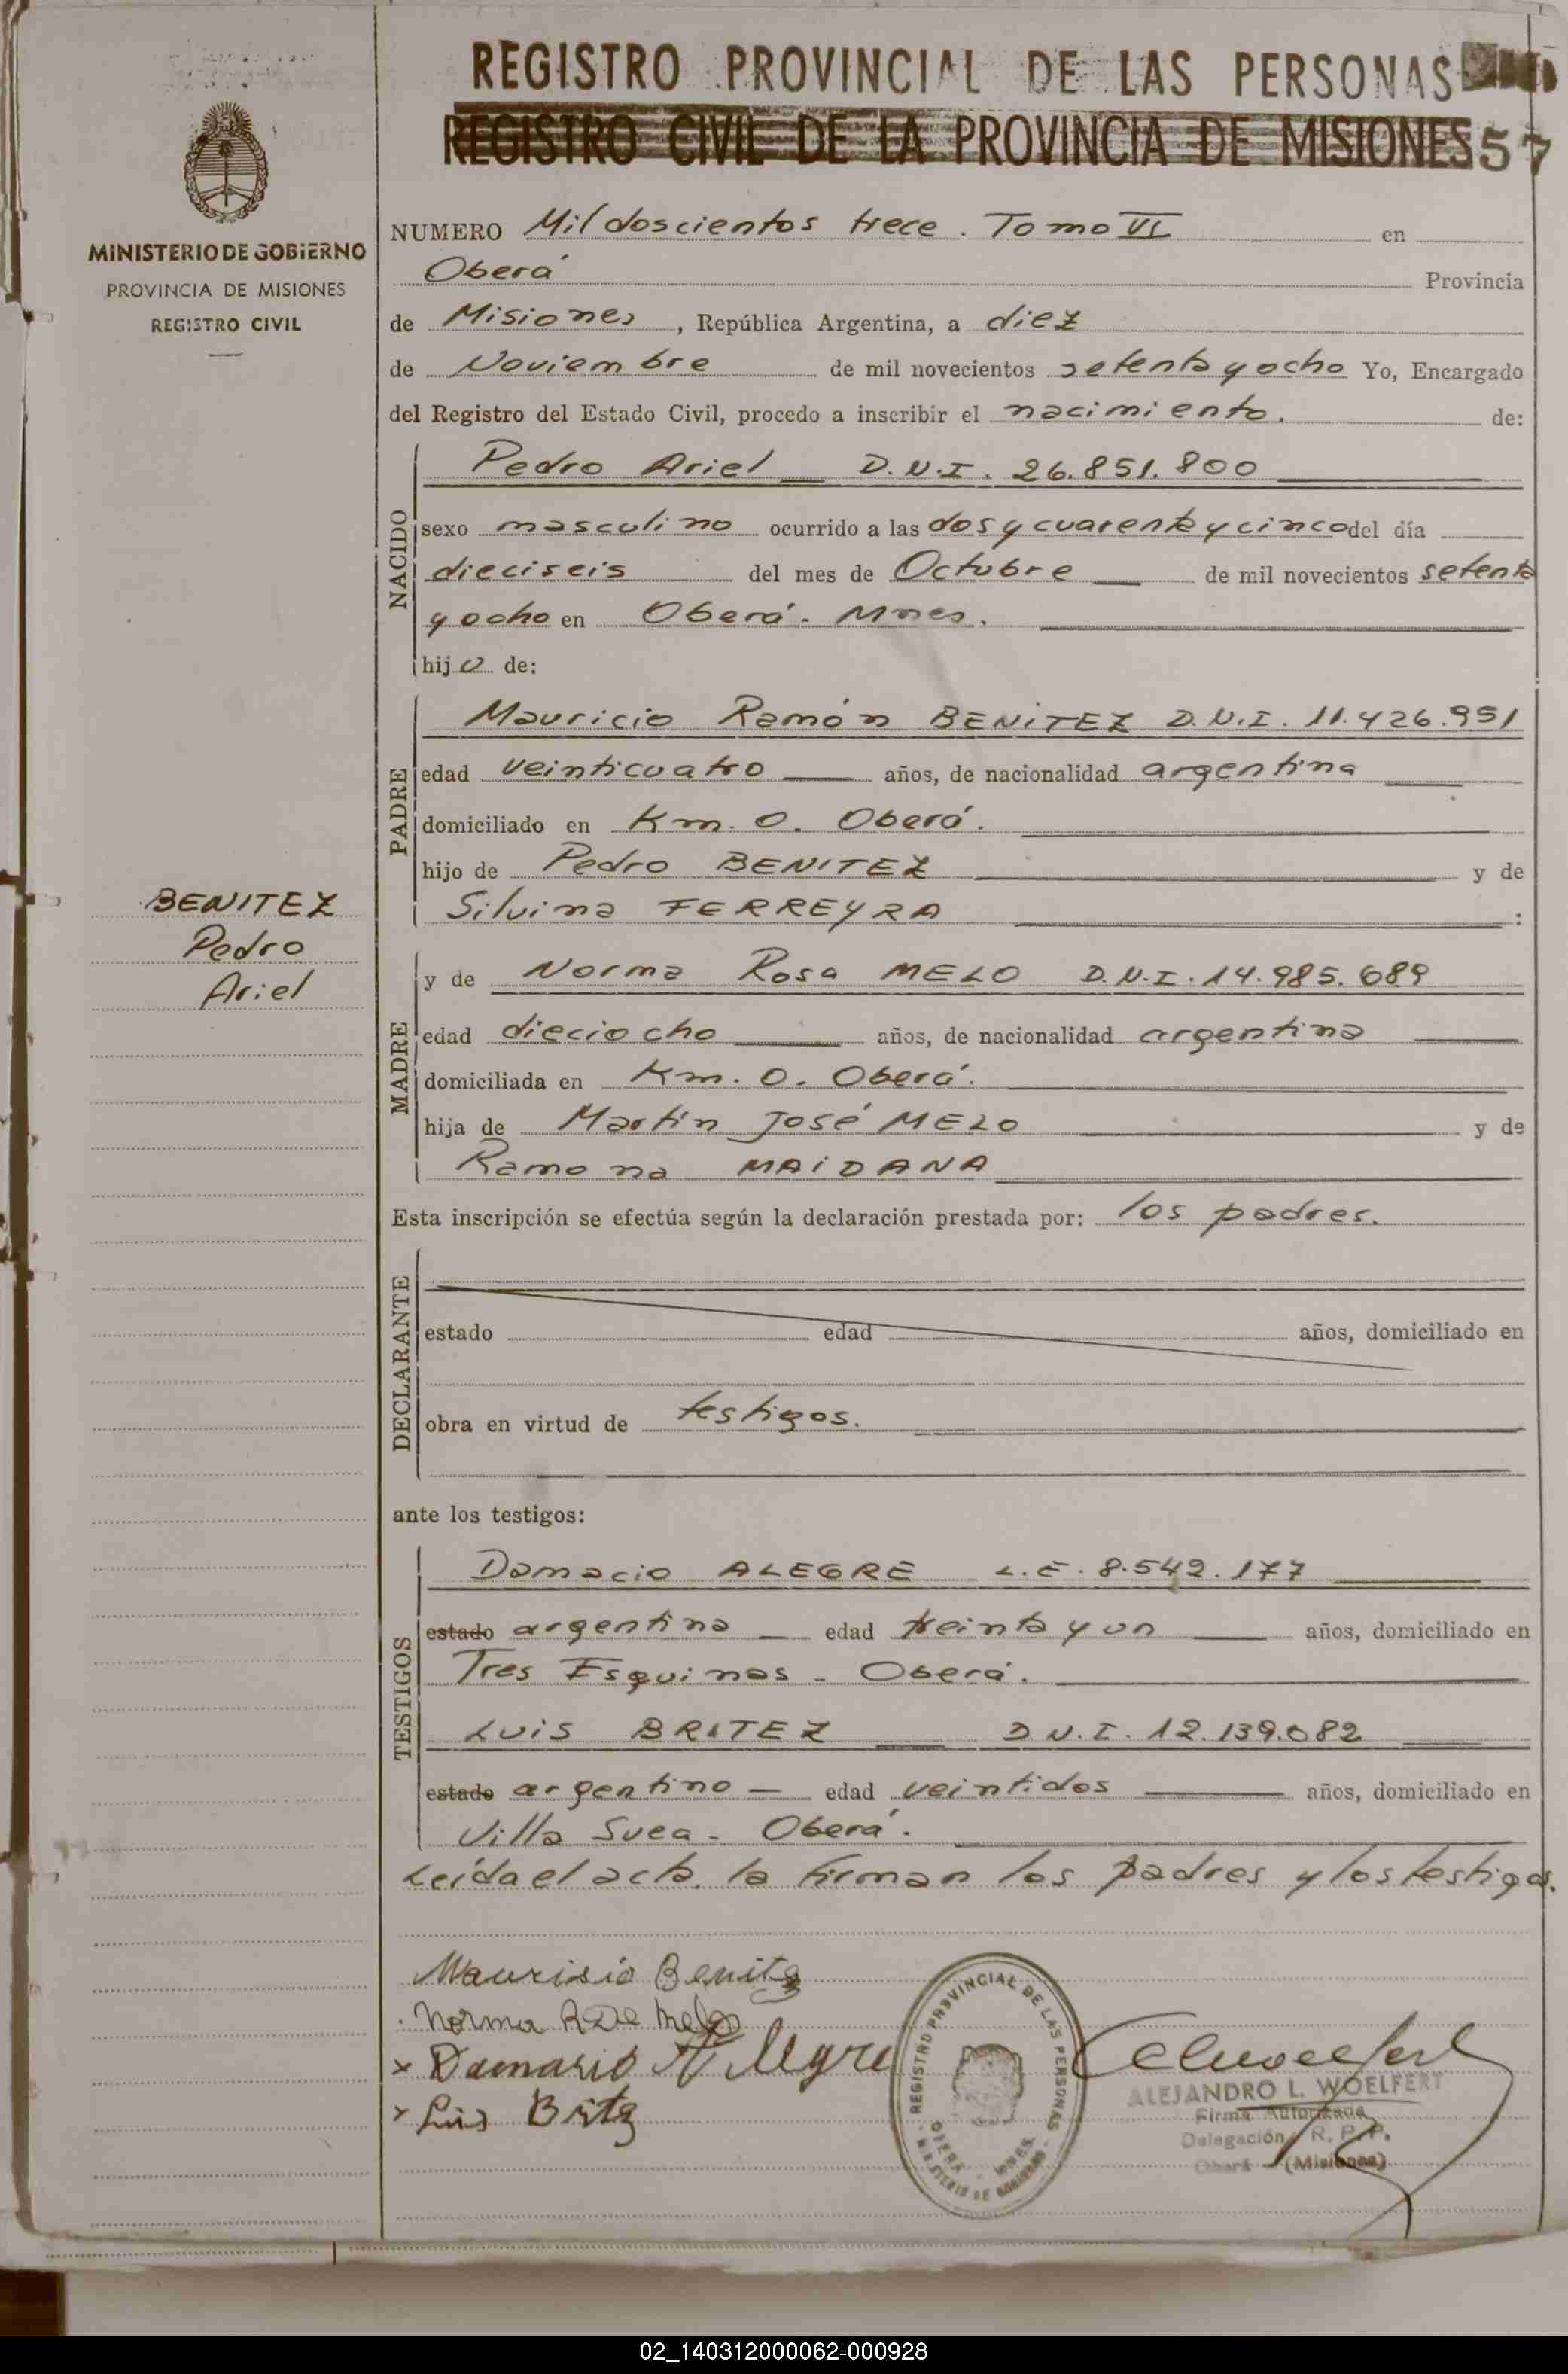 REGISTRO PROVINCIAL DE LAS PERSONAS
REGISTRO CIVIL DE LA PROVINCIA DE MISIONES 57
MINISTERIO DE GOBIERNO
PROVINCIA DE MISIONES
REGISTRO CIVIL
NUMERO Mil doscientos trece. Tomo VI en
Oberá Provincia
de Misiones, República Argentina, a diez
de Noviembre de mil novecientos setenta y ocho Yo, Encargado
del Registro del Estado Civil, procedo a inscribir el nacimiento. de:
NACIDO
Pedro Ariel D.N.I. 26.851.800
sexo masculino ocurrido a las dos y cuarenta y cinco del día
dieciseis del mes de Octubre de mil novecientos setenta
y ocho en Oberá. Mnes.
hijo de:
PADRE
Mauricio Ramón BENiTEZ D.N.I. 11.426.951
edad veinticuatro años, de nacionalidad argentina
domiciliado en Km. 0. Oberá.
hijo de Pedro BENITEZ y de
Silvina FERREYRA :
BENITEZ
Pedro
Ariel
MADRE
y de Norma Rosa MELO D.N.I. 14.985.689
edad dieciocho años, de nacionalidad argentina
domiciliada en Km. 0. Oberá.
hija de Martín José MELO y de
Ramona MAiDANA
Esta inscripción se efectúa según la declaración prestada por: los padres.
DECLARANTE
estado edad años, domiciliado en
obra en virtud de testigos.
ante los testigos:
TESTIGOS
Damacio ALEGRE L.E. 8.542.177
estado argentina edad treinta y un años, domiciliado en
Tres Esquinas - Oberá.
LUiS BRITEZ D.N.I. 12.139.082
estado argentino edad veintidos años, domiciliado en
Villa Svea - Oberá.
Leída el acta, la firman los padres y los testigos.
Maurisio Benitez
Norma R De Melo
x Damasio Alegre
x Luis Britez
REGISTRO PROVINCIAL DE LAS PERSONAS
OBERA - MNES.
MINISTERIO DE GOBIERNO
ALEJANDRO L. WOELFERT
Firma Autorizada
Delegación R. P. P.
Oberá - (Misiones)
02_140312000062-000928